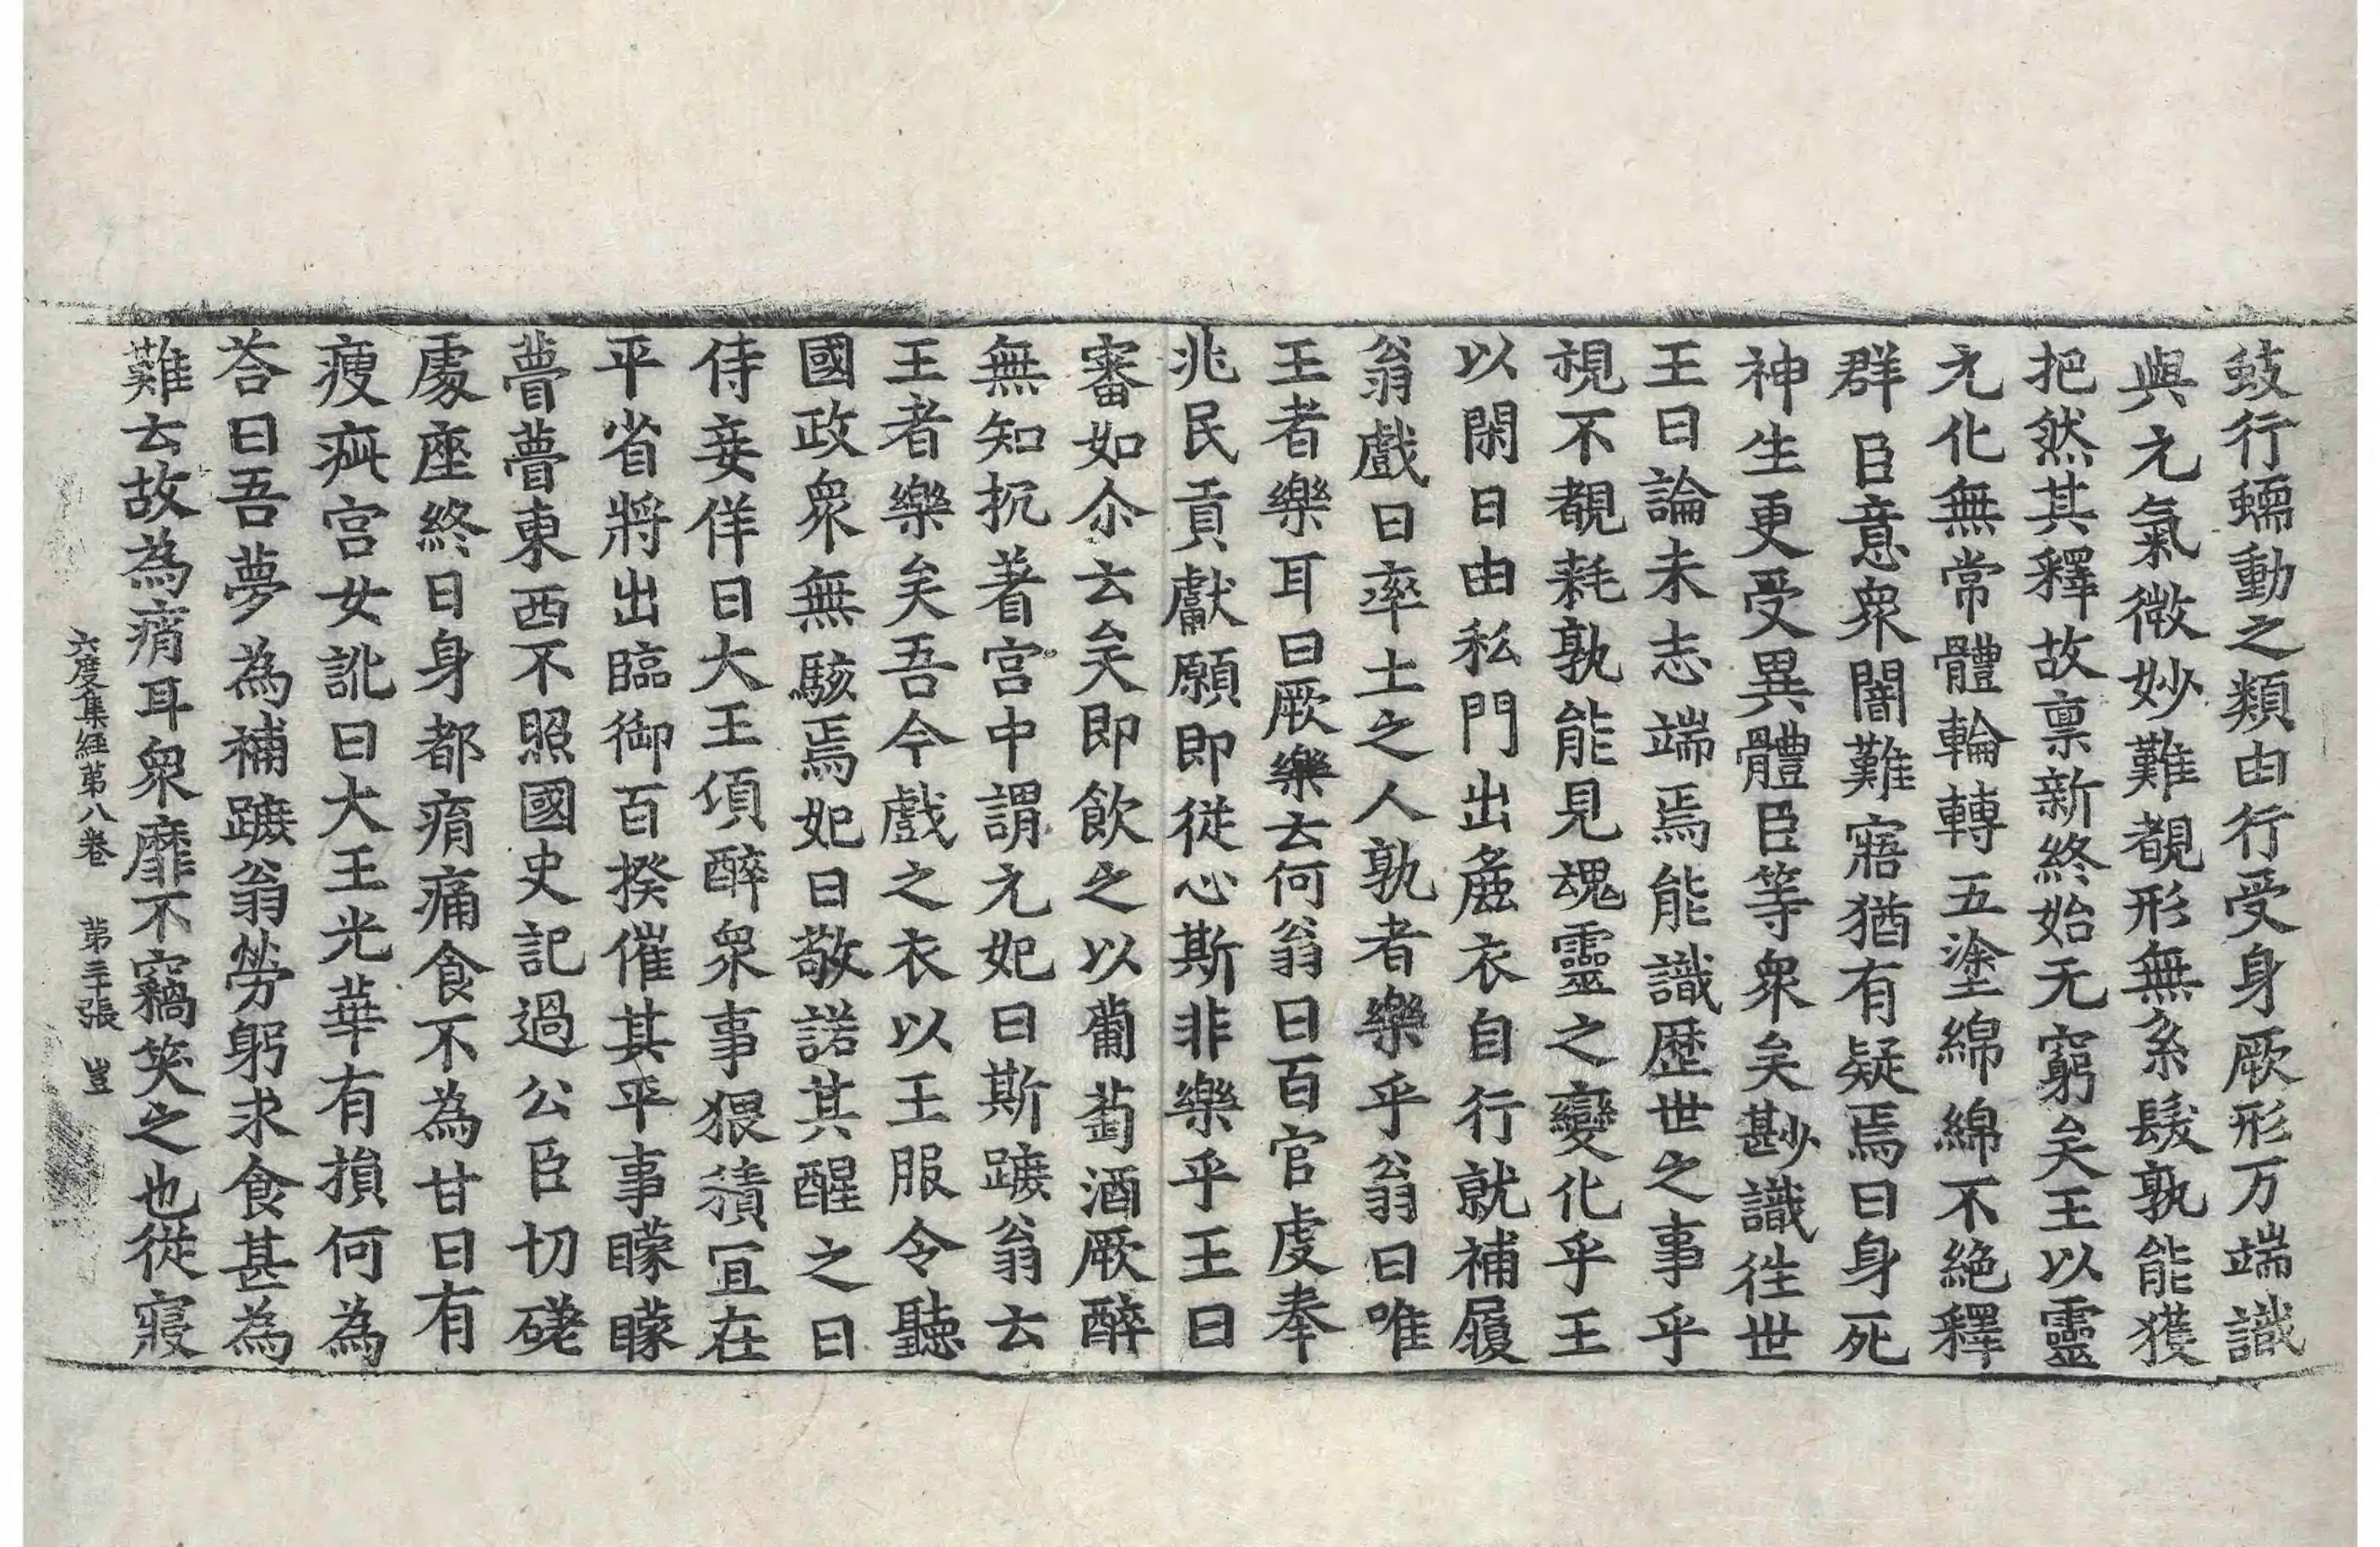 蚑行蠕動之類由行受身厥形万端識
與元氣微妙難覩形無系髮孰能獲
把然其釋故禀新終始无窮矣王以靈
元化無常體輪轉五塗綿綿不絶釋
群臣意衆闇難寤猶有疑焉曰身死
神生更受異體臣等衆矣尠識徃世
王曰論未志端焉能識歷世之事乎
視不覩耗孰能見魂靈之變化乎王
以閑日由私門出麁衣自行就補履
翁戲曰率土之人孰者樂乎翁曰唯
王者樂耳曰厥樂云何翁曰百官虔奉
兆民貢獻願即從心斯非樂乎王曰
審如尒云矣即飲之以葡萄酒厥醉
無知扤著宮中謂元妃曰斯蹠翁云
王者樂矣吾今戲之衣以王服令聽
國政衆無駭焉妃曰敬諾其醒之日
侍妾佯曰大王項醉衆事猥積冝在
平省將出臨御百揆催其平事矇矇
瞢瞢東西不照國史記過公臣切磋
處座終日身都痟痛食不為甘日有
瘦疵宮女訛曰大王光華有損何為
荅曰吾夢為補蹠翁勞躬求食甚為
難云故為痟耳衆靡不竊笑之也從寢
六度集經第八卷 第二十張 豈